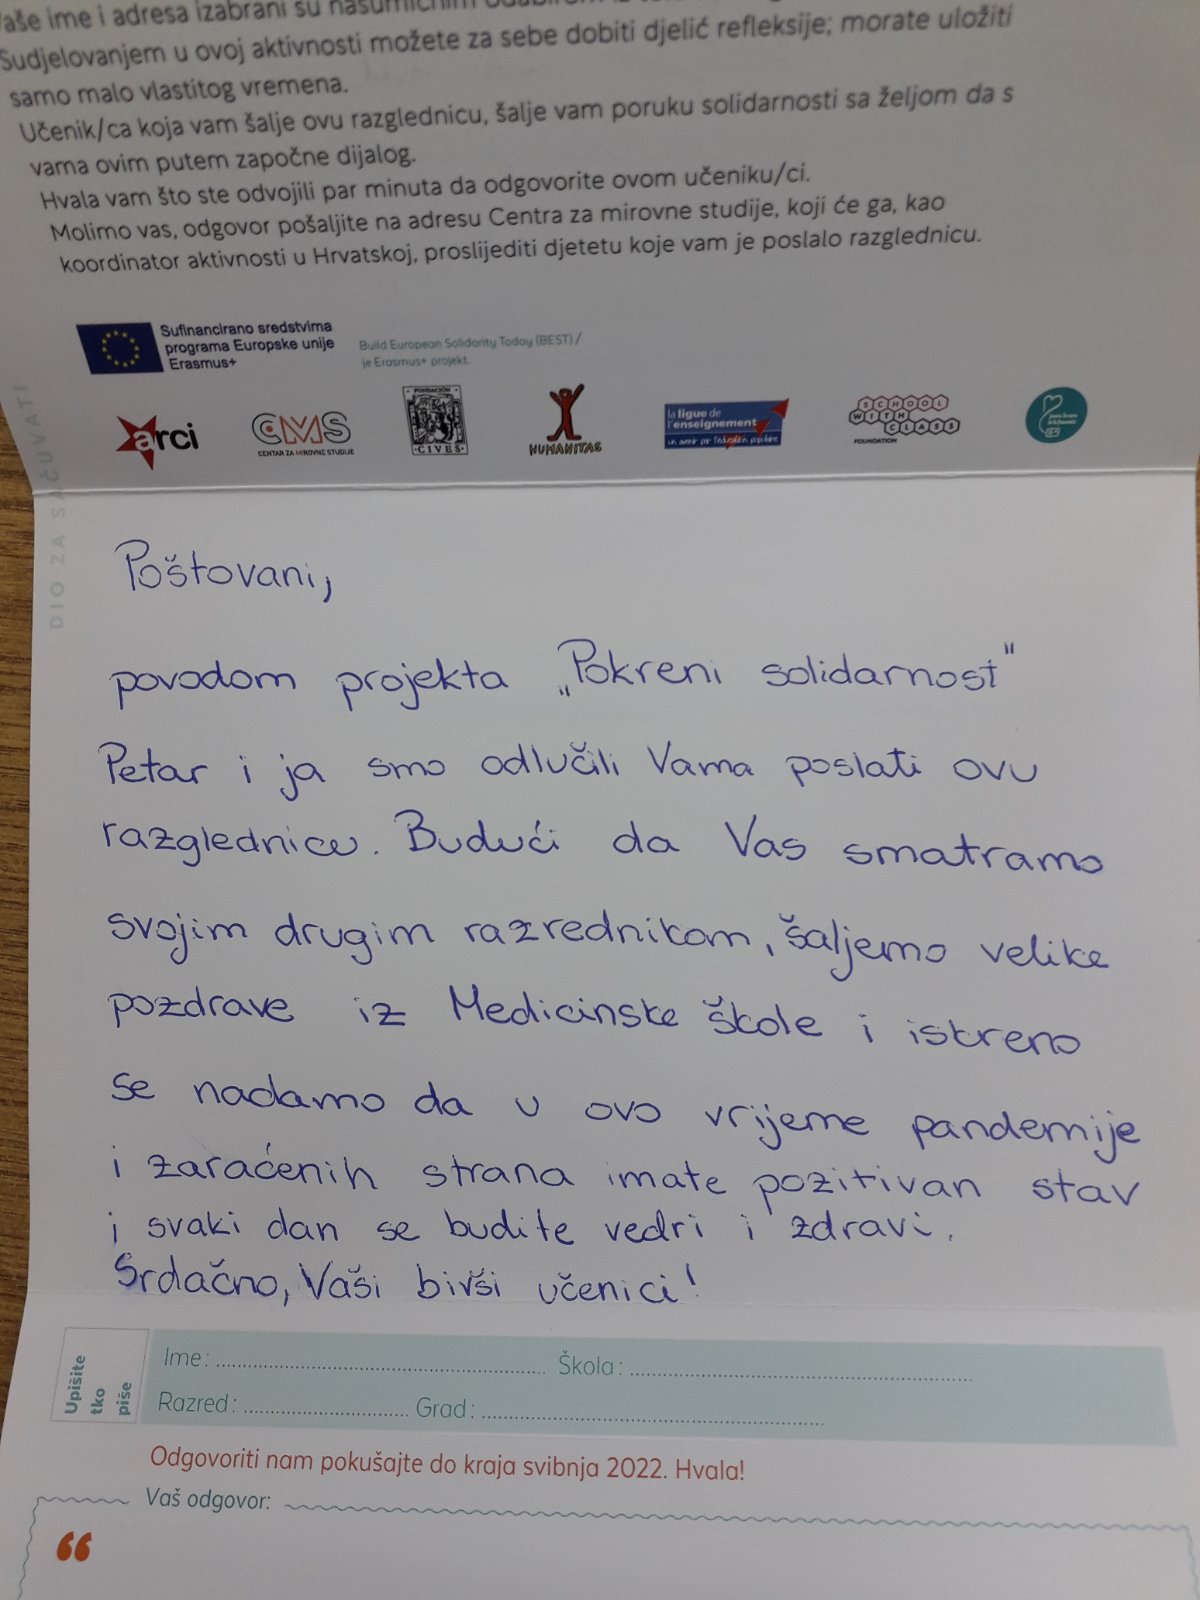 Vaše ime i adresa izabrani su nasumičnim odabirom iz
Sudjelovanjem u ovoj aktivnosti možete za sebe dobiti djelić refleksije; morate uložiti
samo malo vlastitog vremena.
Učenik/ca koja vam šalje ovu razglednicu, šalje vam poruku solidarnosti sa željom da s
vama ovim putem započne dijalog.
Hvala vam što ste odvojili par minuta da odgovorite ovom učeniku/ci.
Molimo vas, odgovor pošaljite na adresu Centra za mirovne studije, koji će ga, kao
koordinator aktivnosti u Hrvatskoj, proslijediti djetetu koje vam je poslalo razglednicu.
Sufinancirano sredstvima
programa Europske unije
Erasmus+
Build European Solidarity Today (BEST) /
je Erasmus+ projekt.
arci
CMS
CENTAR ZA MIROVNE STUDIJE
FUNDACIÓN
CIVES
HUMANITAS
la ligue de
l'enseignement
un avenir par l'éducation populaire
SCHOOL
WITH
CLASS
FOUNDATION
DIO ZA SAČUVATI
Poštovani,
povodom projekta „Pokreni solidarnost"
Petar i ja smo odlučili Vama poslati ovu
razglednicu. Budući da Vas smatramo
svojim drugim razrednikom, šaljemo velike
pozdrave iz Medicinske škole i iskreno
se nadamo da u ovo vrijeme pandemije
i zaraćenih strana imate pozitivan stav
i svaki dan se budite vedri i zdravi.
Srdačno, Vaši bivši učenici!
Upišite
tko
piše
Ime: Škola:
Razred: Grad:
Odgovoriti nam pokušajte do kraja svibnja 2022. Hvala!
Vaš odgovor:
“